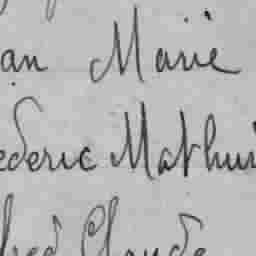 an Marie
ederic Mathui
lred Claude